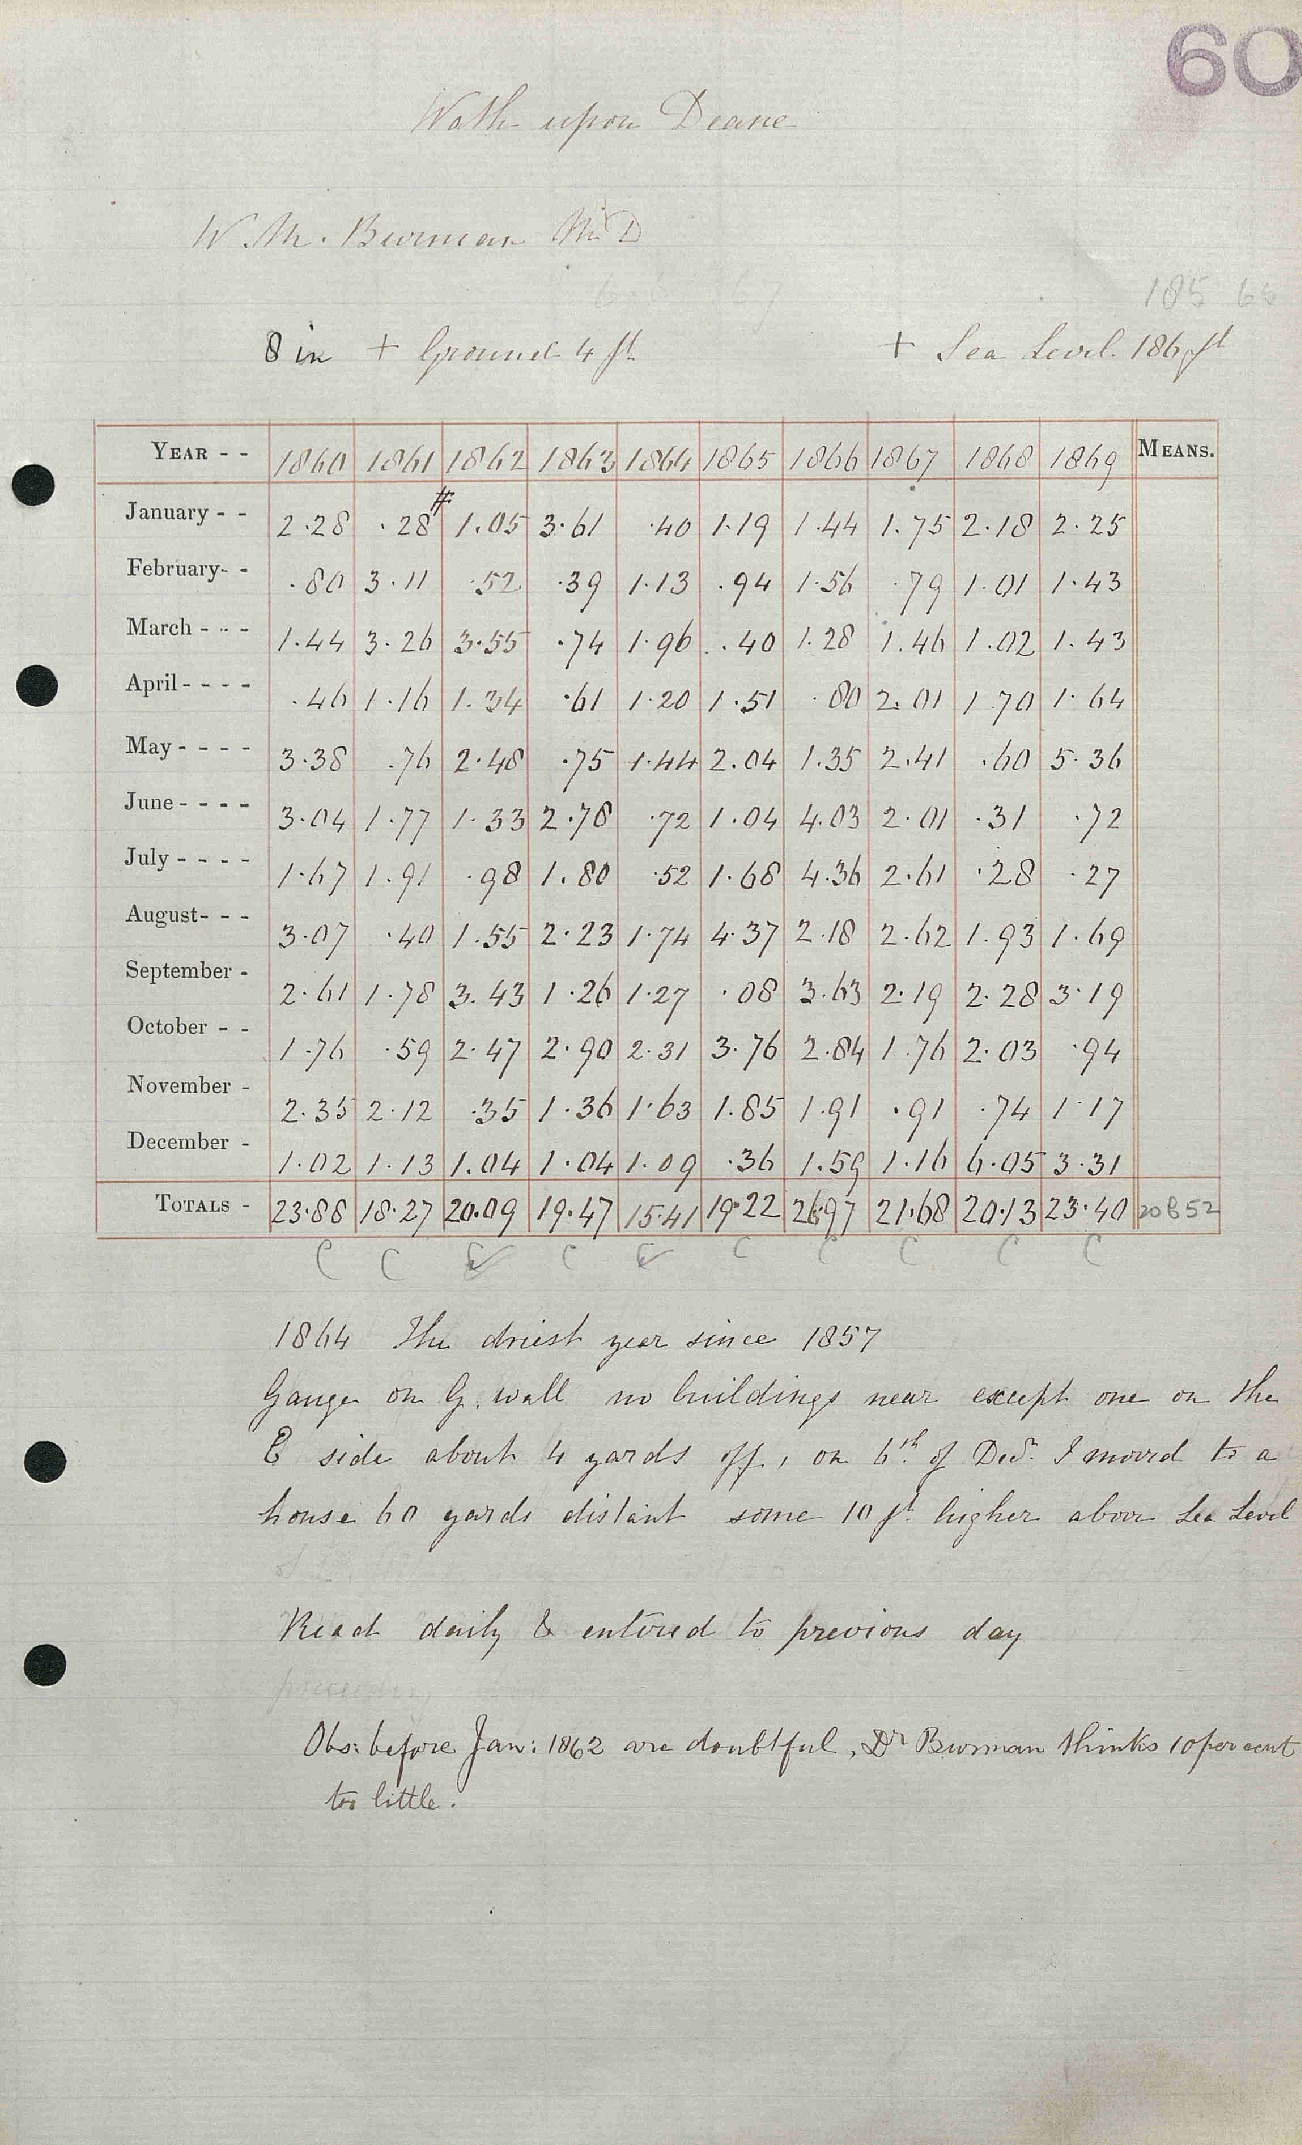 60
Wath upon Deane
W. M. Burman M.D
8 in + Ground 4 ft + Sea Level 186 ft
YEAR - - 1860 1861 1862 1863 1864 1865 1866 1867 1868 1869 MEANS.
January - - 2.28 .28 # 1.05 3.61 .40 1.19 1.44 1.75 2.18 2.25
February- - .80 3.11 .52 .39 1.13 .94 1.56 .79 1.01 1.43
March - - - 1.44 3.26 3.55 .74 1.96 .40 1.28 1.46 1.02 1.43
April - - - - .46 1.16 1.34 .61 1.20 1.51 .80 2.01 1.70 1.64
May - - - - 3.38 .76 2.48 .75 1.44 2.04 1.35 2.41 .60 5.36
June - - - - 3.04 1.77 1.33 2.78 .72 1.04 4.03 2.01 .31 .72
July - - - - 1.67 1.91 .98 1.80 .52 1.68 4.36 2.61 .28 .27
August- - - 3.07 .40 1.55 2.23 1.74 4.37 2.18 2.62 1.93 1.69
September - 2.61 1.78 3.43 1.26 1.27 .08 3.63 2.19 2.28 3.19
October - - 1.76 .59 2.47 2.90 2.31 3.76 2.84 1.76 2.03 .94
November - 2.35 2.12 .35 1.36 1.63 1.85 1.91 .91 .74 1.17
December - 1.02 1.13 1.04 1.04 1.09 .36 1.59 1.16 6.05 3.31
TOTALS - 23.88 18.27 20.09 19.47 15.41 19.22 26.97 21.68 20.13 23.40 20852
C C C C C C C C C C
1864 The driest year since 1857
Gauge on G. wall no buildings near except one on the
E side about 4 yards off, on 6th of Decr. I moved to a
house 60 yards distant some 10 ft higher above Sea Level
Read daily & entered to previous day
Obs: before Jan: 1862 are doubtful, Dr Burman thinks 10 per cent
too little.